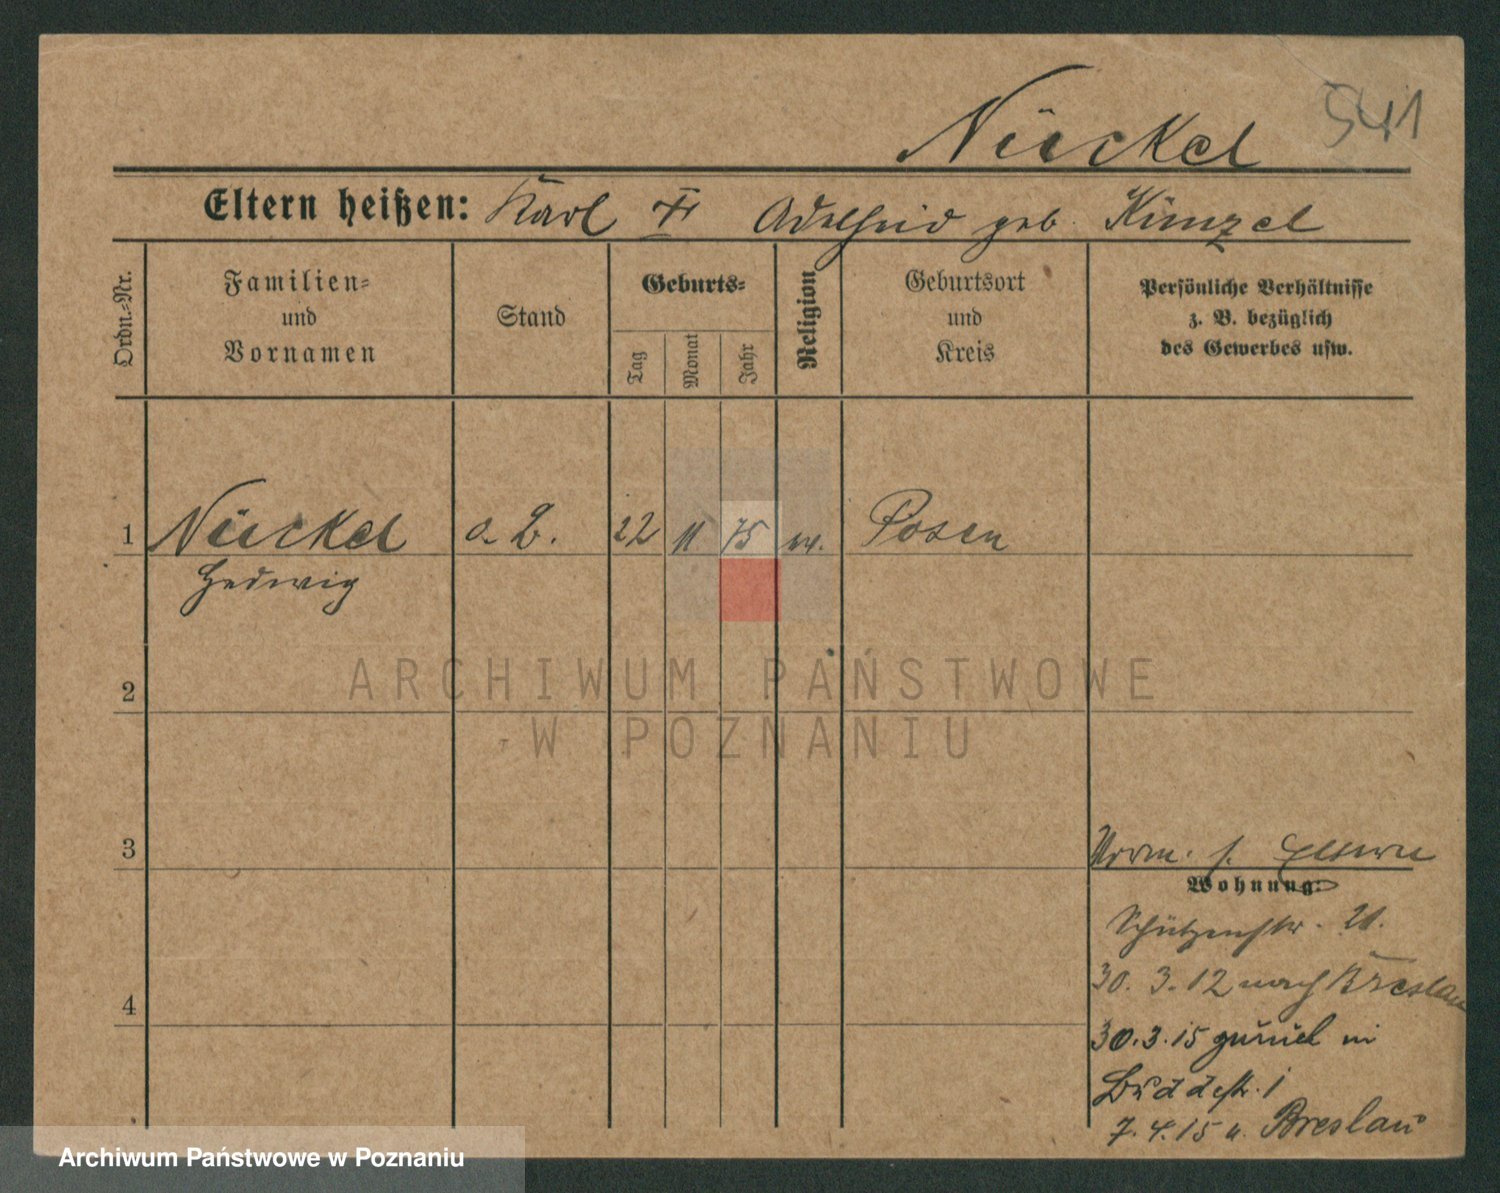 541
Nückel
Eltern heißen: Karl † Adelheid geb. Künzel
Ordn.-Nr.
Familien-
und
Vornamen
Stand
Geburts-
Tag
Monat
Jahr
Religion
Geburtsort
und
Kreis
Persönliche Verhältnisse
z. B. bezüglich
des Gewerbes usw.
1 Nückel o. B. 22 11 75 Posen
Hedwig
2
ARCHIWUM PAŃSTWOWE
W POZNANIU
3
s. Eltern
Wohnung:
Schützenstr. 21.
30. 3. 12 nach Breslau
4
30. 3. 15 zurück in
Buddestr. 1
7. 4. 15 n. Breslau
Archiwum Państwowe w Poznaniu